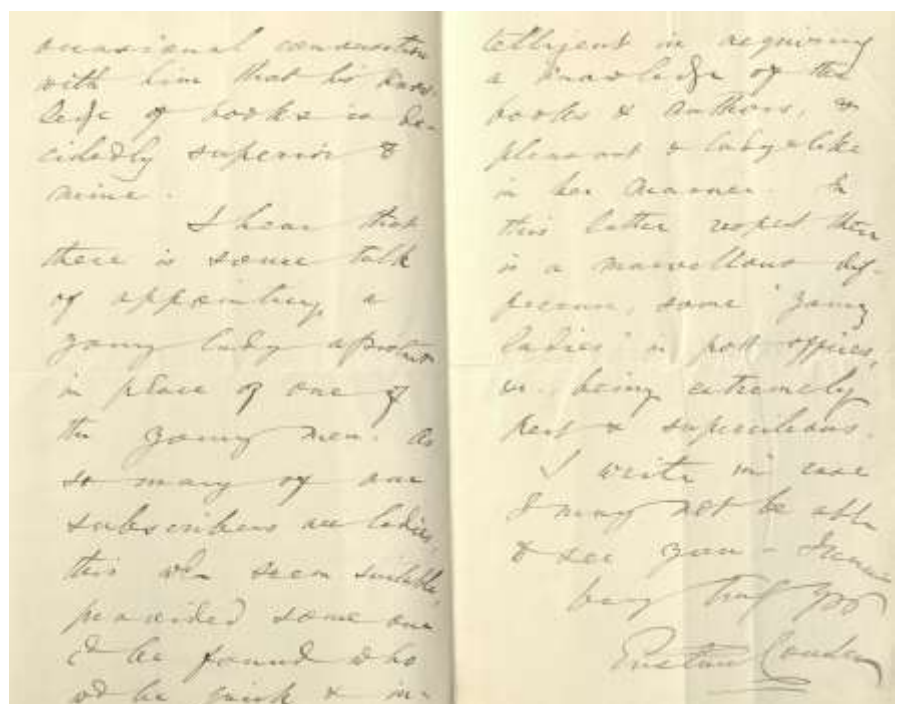 occasional conversation
with him that his know-
ledge of books is de-
cidedly superior to
mine.
I hear that
there is some talk
of appointing a
young lady assistant
in place of one of
the young men. As
so many of our
subscribers are ladies,
this wd seem suitable,
provided some one
cd be found who
wd be quick & in-
telligent in acquiring
a knowledge of the
books & authors, &
pleasant & ladylike
in her manner. In
this latter respect there
is a marvellous dif-
ference, some "young
ladies" in post offices,
being extremely
pert & supercilious.
I write in case
I may not be able
to see you – I remain
very truly yrs